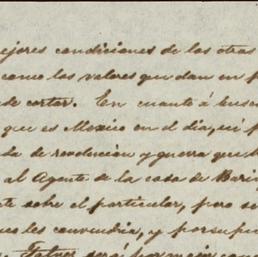 ejores condiciones de las otras
como los valores que dan un p
de cortar. En cuanto á busca
que es Mexico en el dia, ni p
da de revolucion y guerra que h
al Agente de la casa de Bari
te sobre el particular, pero si
ues les convendria, y por supu
será